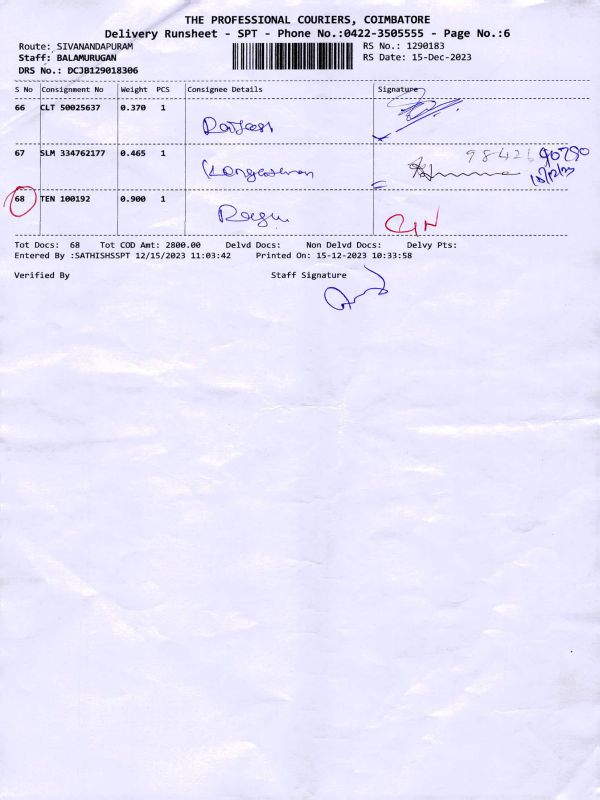 THE PROFESSIONAL COURIERS, COIMBATORE
Delivery Runsheet - SPT - Phone No.:0422-3505555 - Page No.:6
Route: SIVANANDAPURAM RS No.: 1290183
Staff: BALAMURUGAN RS Date: 15-Dec-2023
DRS No.: DCJB129018306
S No Consignment No Weight PCS Consignee Details Signature
66 CLT 50025637 0.370 1
67 SLM 334762177 0.465 1
68 TEN 100192 0.900 1
Tot Docs: 68 Tot COD Amt: 2800.00 Delvd Docs: Non Delvd Docs: Delvy Pts:
Entered By :SATHISHSSPT 12/15/2023 11:03:42 Printed On: 15-12-2023 10:33:58
Verified By Staff Signature